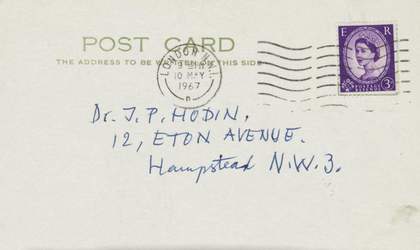 POST CARD
THE ADDRESS TO BE WRITTEN ON THIS SIDE
LONDON
10 MAY
1967
E R
3D
Dr. J. P. HODIN,
12, ETON AVENUE.
Hampstead N.W.3.